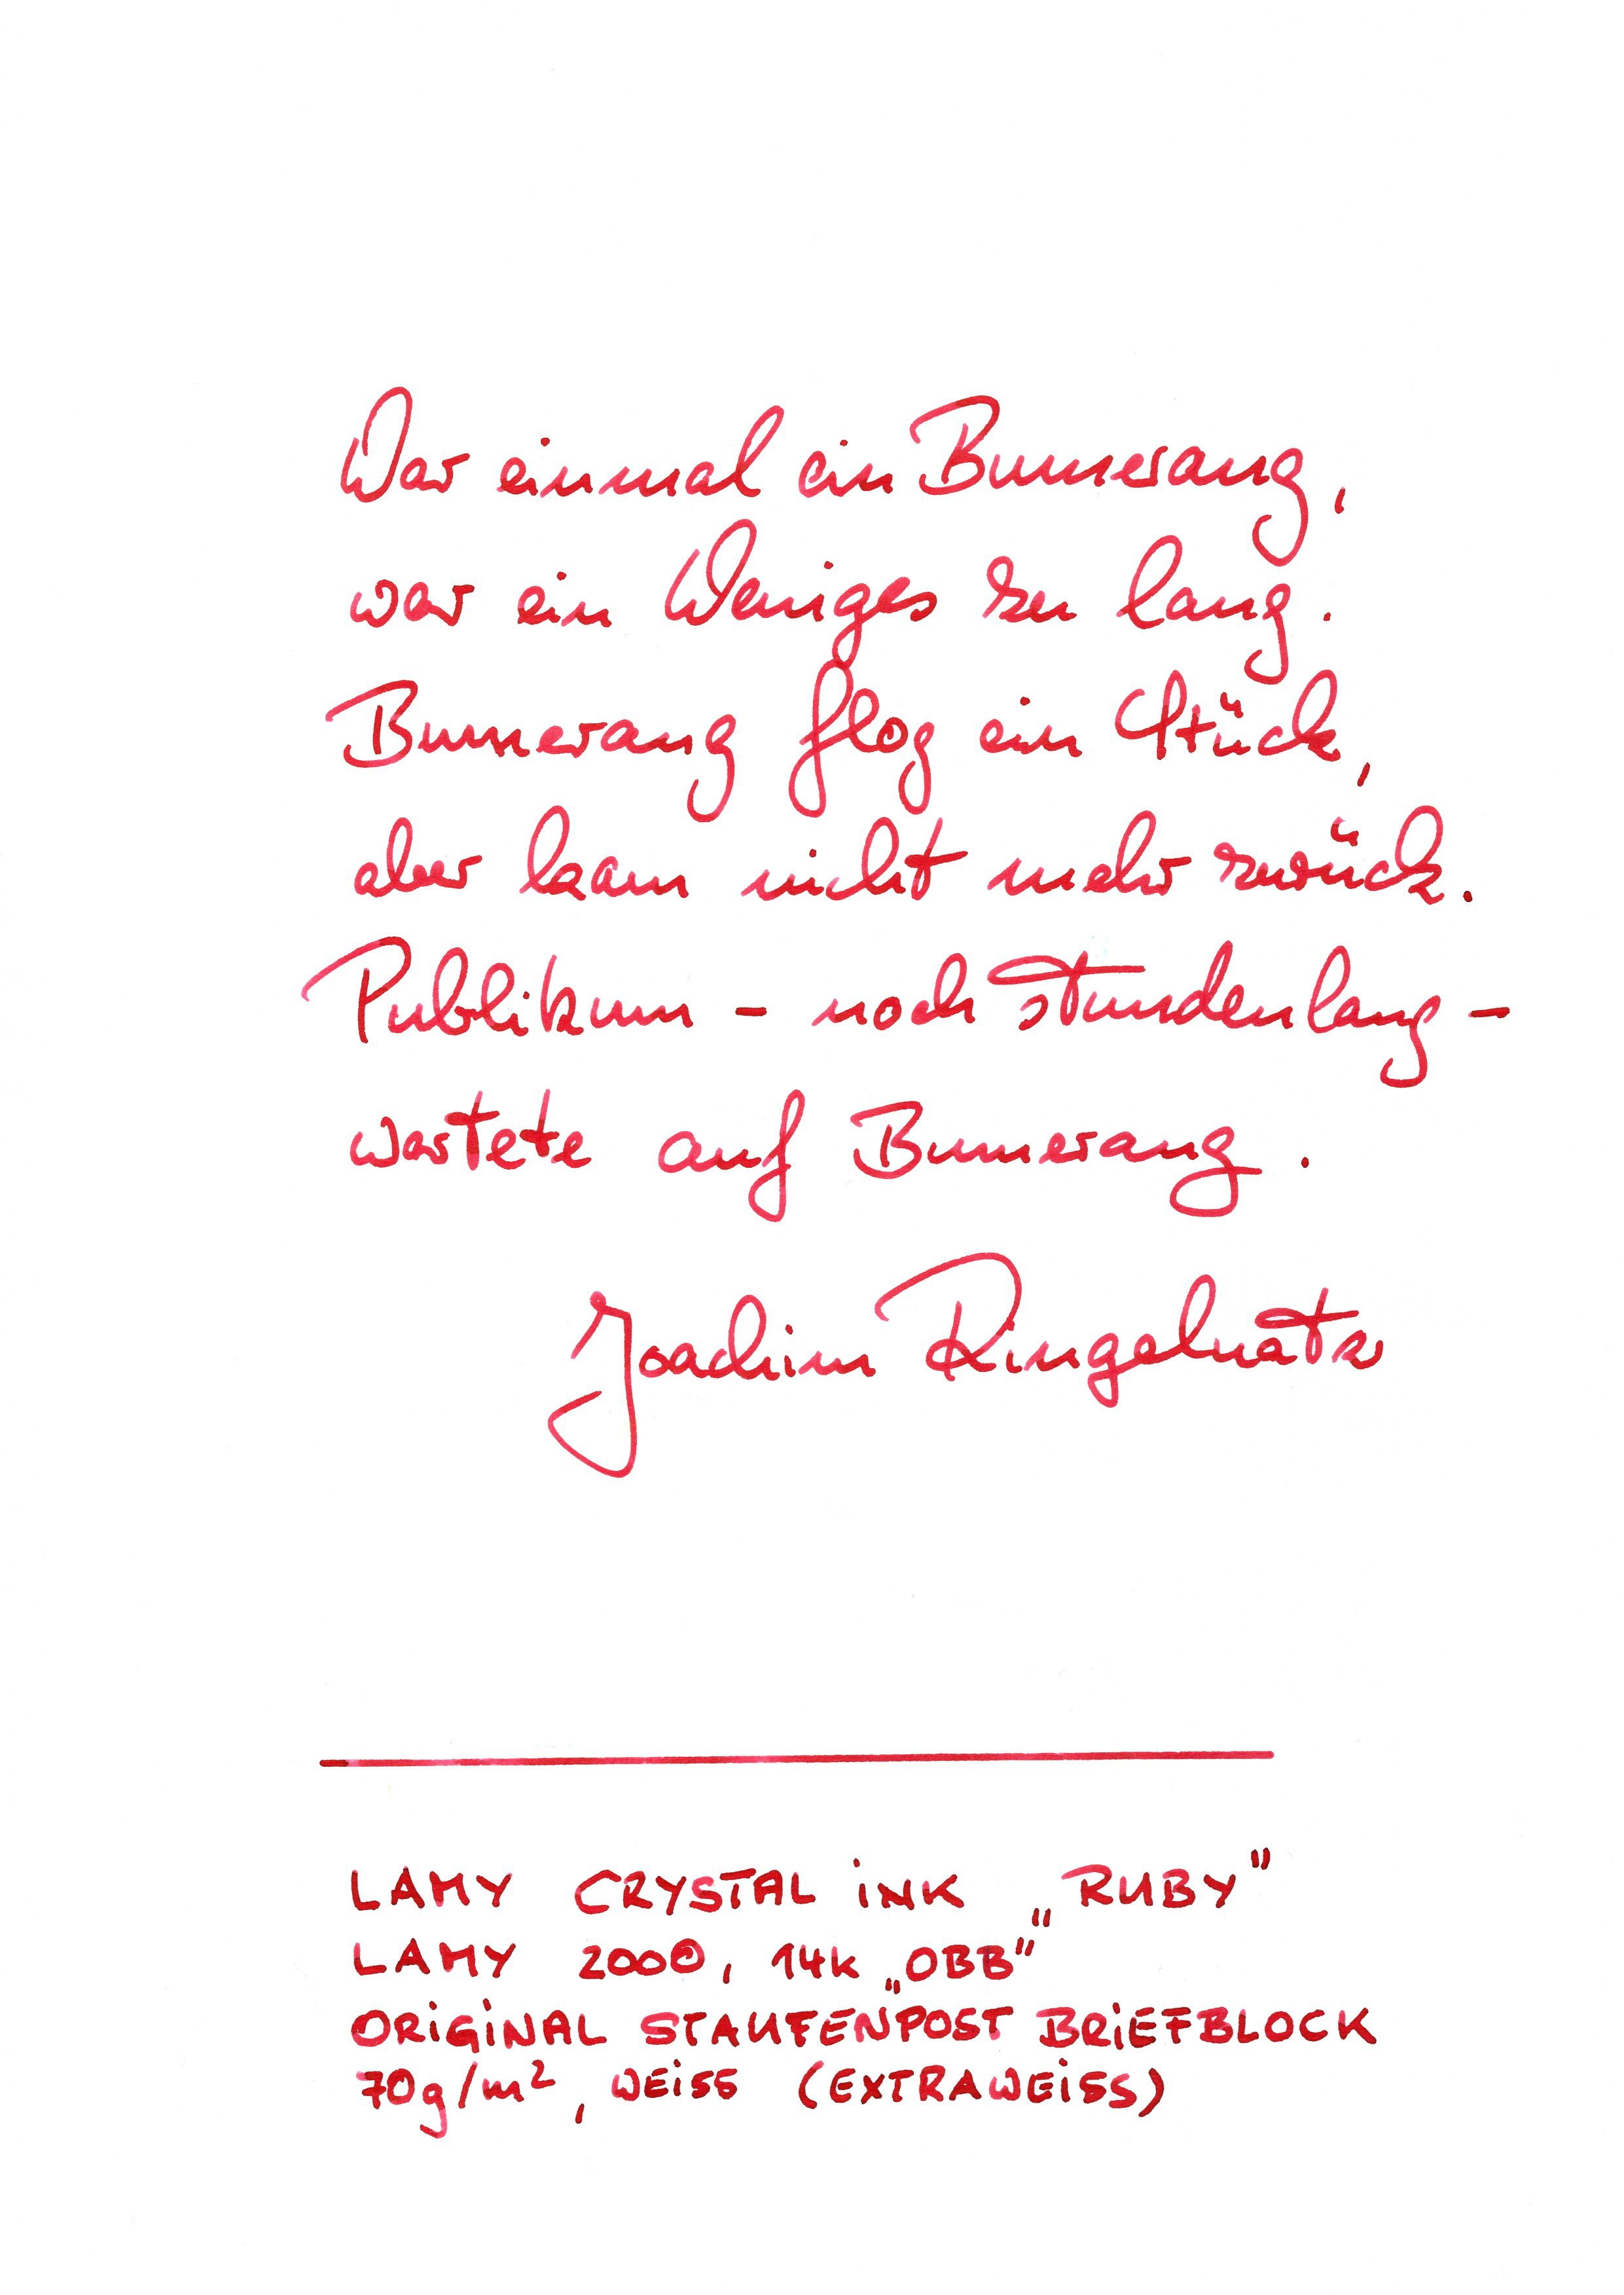 War einmal ein Bumerang,
war ein Weniges zu lang.
Bumerang flog ein Stück,
aber kam nicht mehr zurück.
Publikum – noch stundenlang –
wartete auf Bumerang.
Joachim Ringelnatz
LAMY CRYSTAL INK „RUBY"
LAMY 2000, 14K „OBB"
ORIGINAL STAUFENPOST BRIEFBLOCK
70g/m², WEISS (EXTRAWEISS)